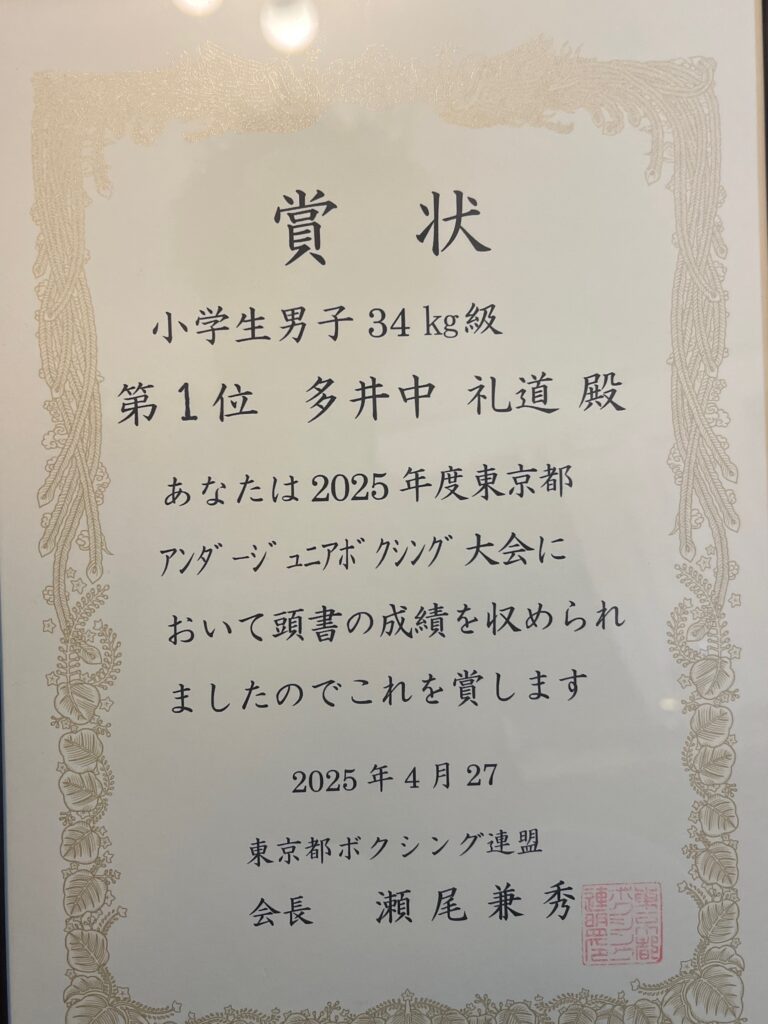 賞 状
小学生男子 34 kg級
第 1 位 多井中 礼道 殿
あなたは 2025 年度東京都
ｱﾝﾀﾞｰｼﾞｭﾆｱﾎﾞｸｼﾝｸﾞ大会に
おいて頭書の成績を収められ
ましたのでこれを賞します
2025 年 4 月 27
東京都ボクシング連盟
会長 瀬 尾 兼 秀
東京都
ボクシング
連盟之印